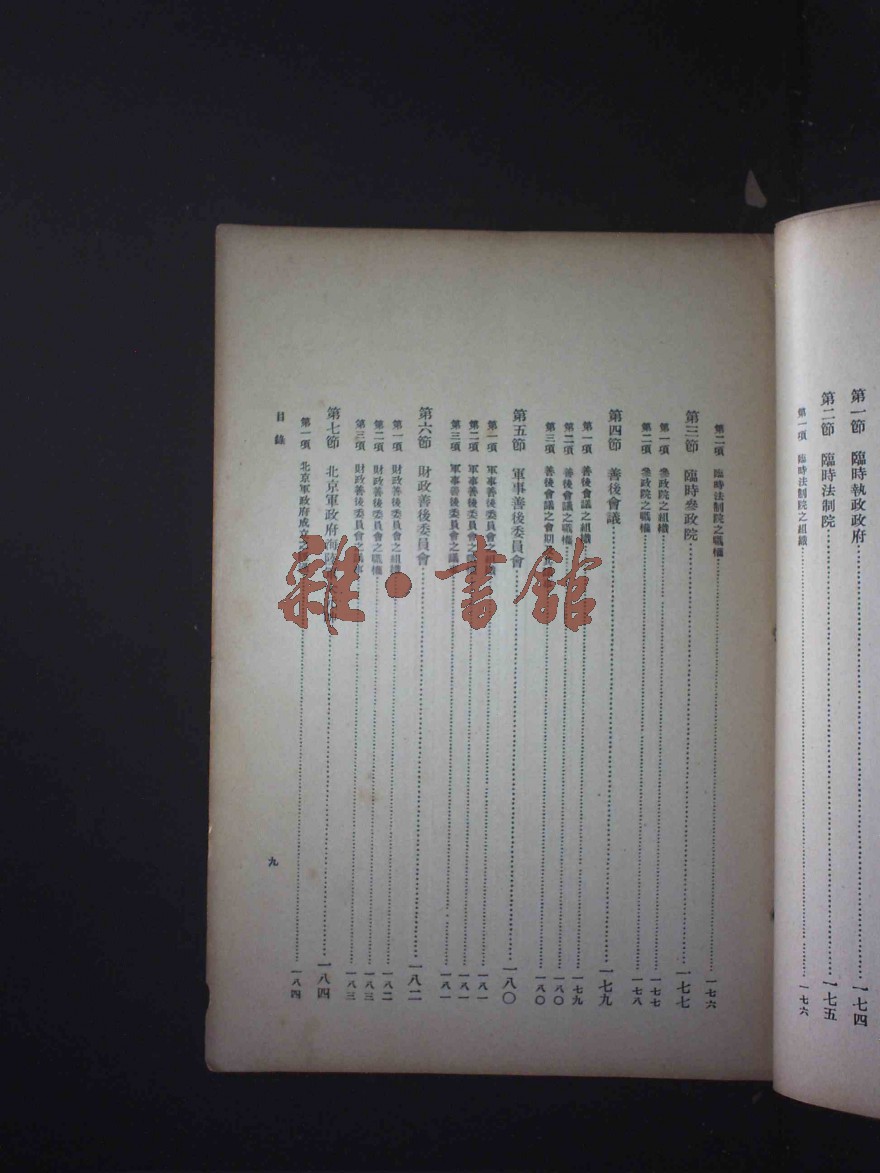 第一節 臨時執政政府 一七四
第二節 臨時法制院 一七五
第一項 臨時法制院之組織 一七六
第二項 臨時法制院之職權 一七六
第三節 臨時參政院 一七七
第一項 參政院之組織 一七七
第二項 參政院之職權 一七八
第四節 善後會議 一七九
第一項 善後會議之組織 一七九
第二項 善後會議之職權 一八〇
第三項 善後會議之會期 一八〇
第五節 軍事善後委員會 一八〇
第一項 軍事善後委員會之組織 一八一
第二項 軍事善後委員會之職權 一八一
第三項 軍事善後委員會之議事 一八一
第六節 財政善後委員會 一八二
第一項 財政善後委員會之組織 一八二
第二項 財政善後委員會之職權 一八三
第三項 財政善後委員會之議事 一八三
第七節 北京軍政府海陸 一八四
第一項 北京軍政府成立之 一八四
目錄
九
雜·書館